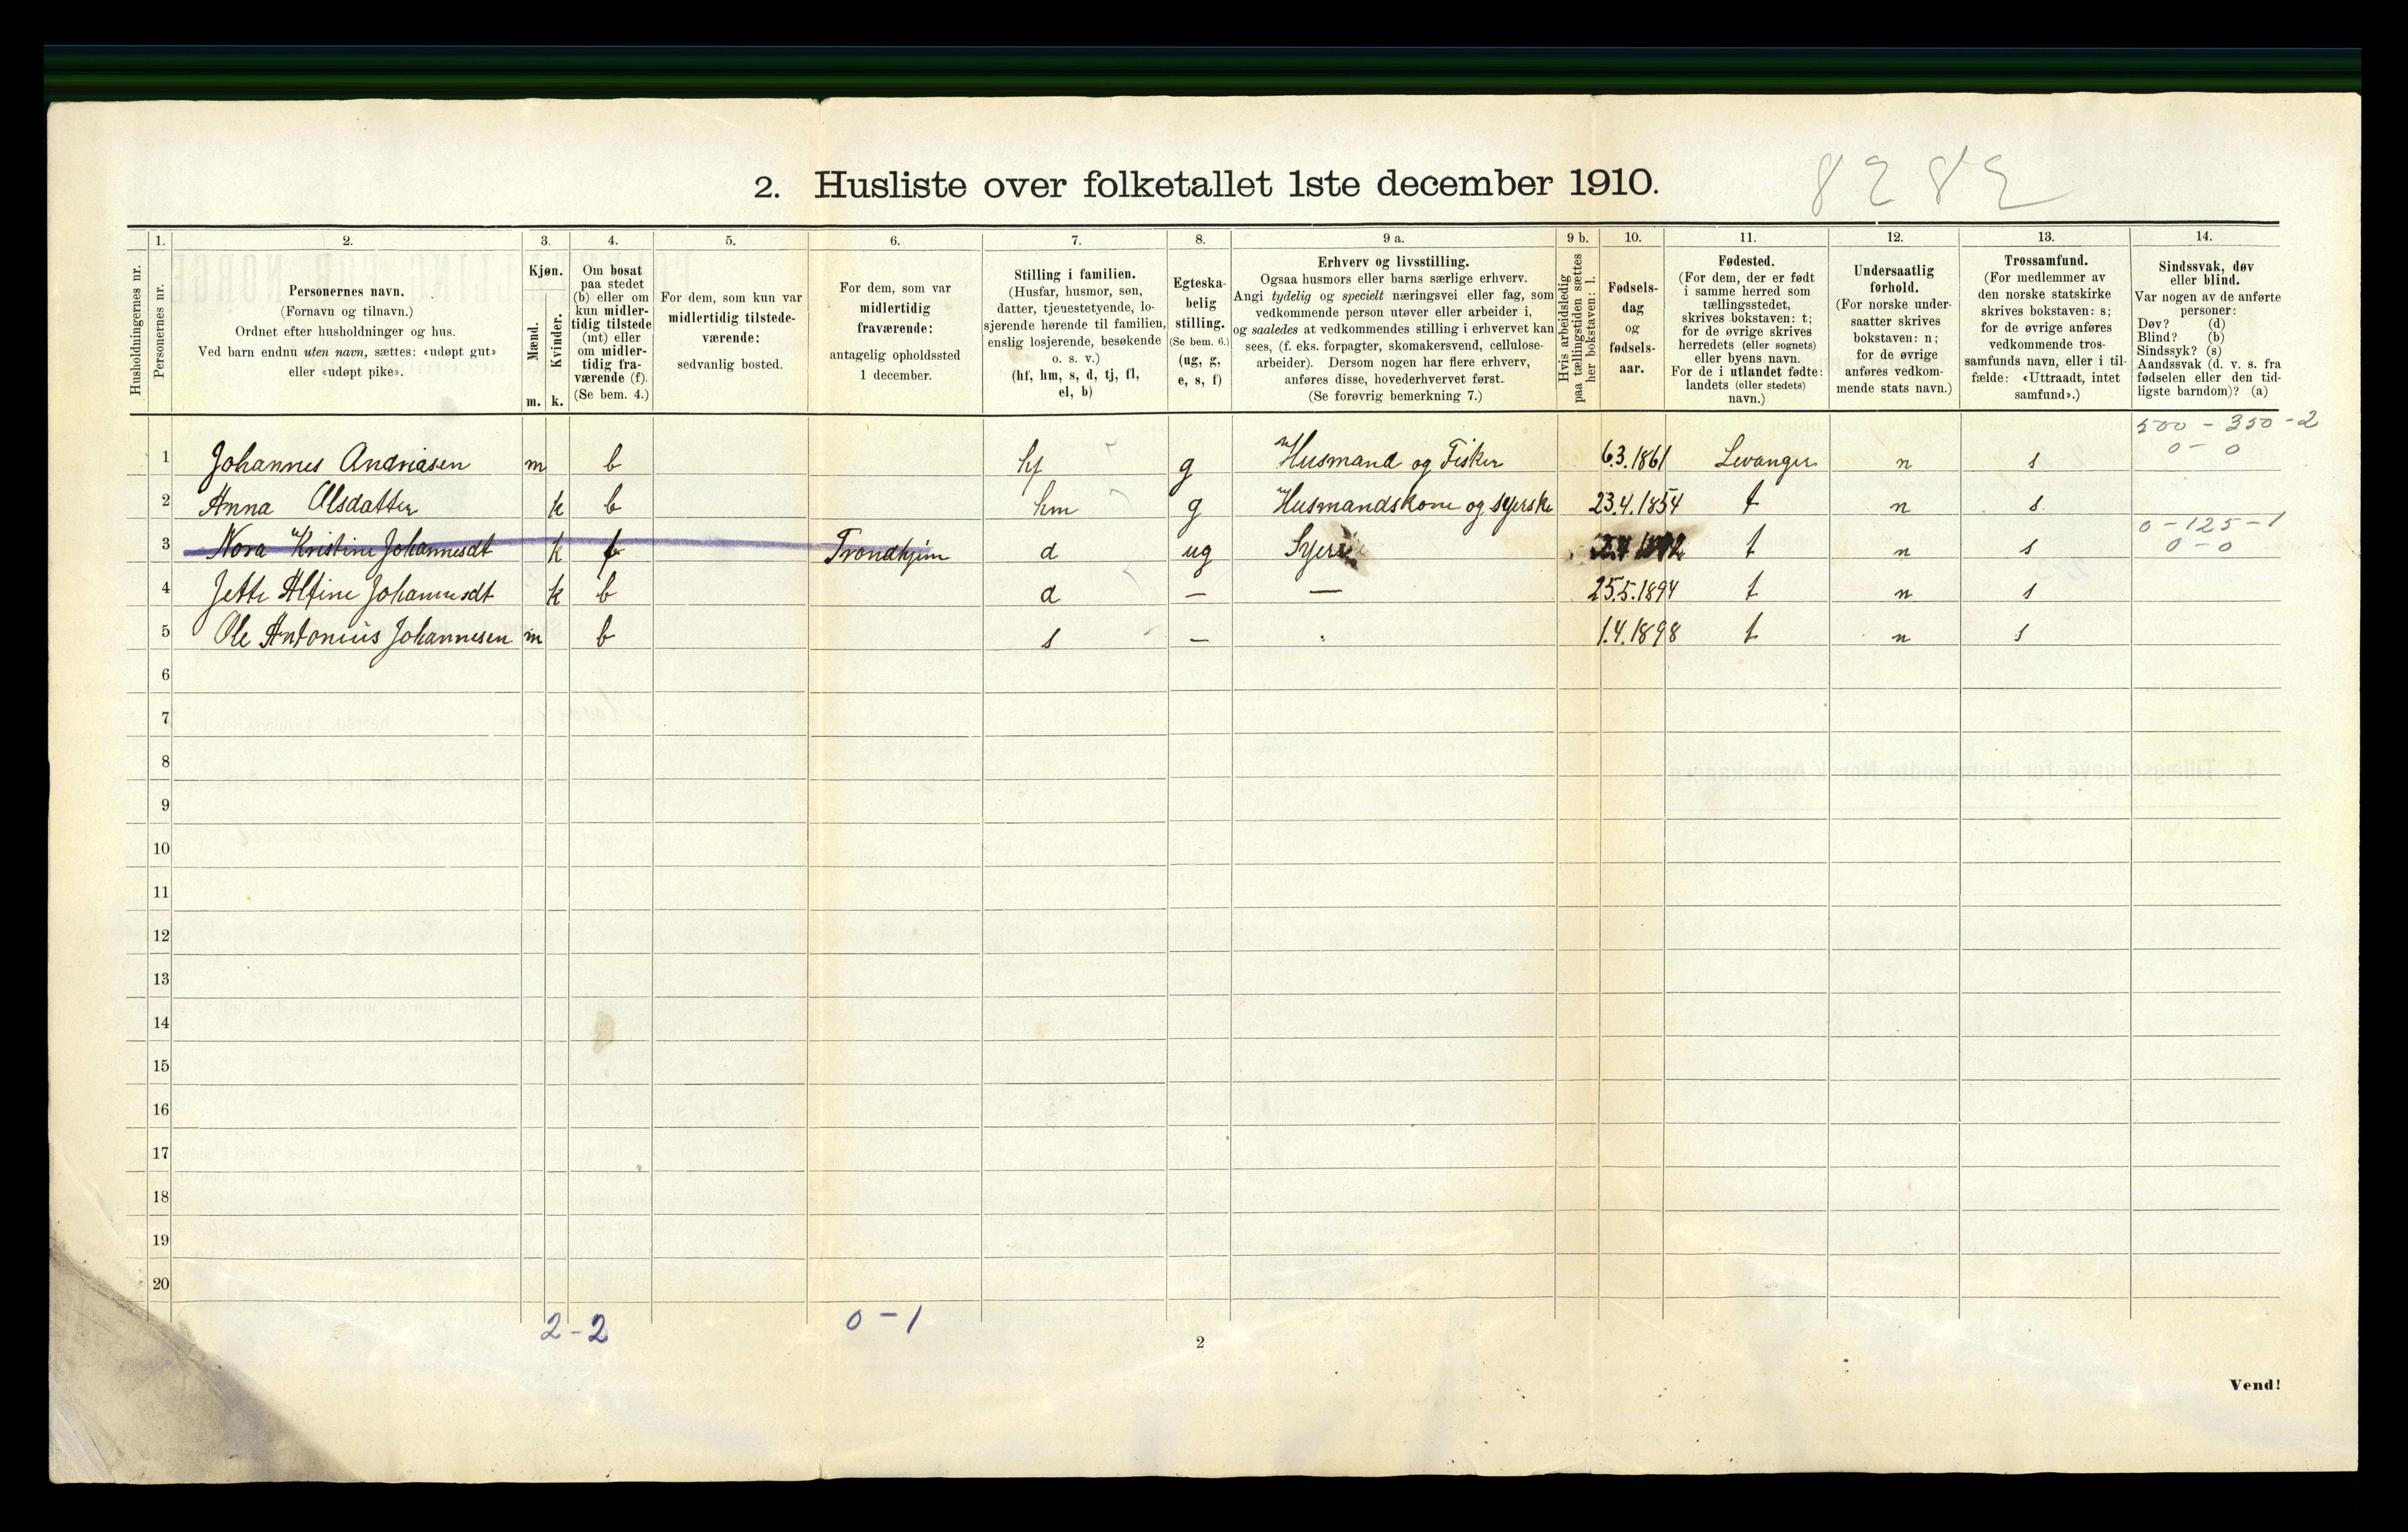 2. Husliste over folketallet 1ste december 1910.
8282
Husholdningernes nr.
1.
Personernes nr.
2.
Personernes navn.
(Fornavn og tilnavn.)
Ordnet efter husholdninger og hus.
Ved barn endnu uten navn, sættes: «udøpt gut»
eller «udøpt pike».
3.
Kjøn.
Mænd.
Kvinder.
m. k.
4.
Om bosat
paa stedet
(b) eller om
kun midler-
tidig tilstede
(mt) eller
om midler-
tidig fra-
værende (f).
(Se bem. 4.)
5.
For dem, som kun var
midlertidig tilstede-
værende:
sedvanlig bosted.
6.
For dem, som var
midlertidig
fraværende:
antagelig opholdssted
1 december.
7.
Stilling i familien.
(Husfar, husmor, søn,
datter, tjenestetyende, lo-
sjerende hørende til familien,
enslig losjerende, besøkende
o. s. v.)
(hf, hm, s, d, tj, fl,
el, b)
8.
Egteska-
belig
stilling.
(Se bem. 6.)
(ug, g,
e, s, f)
9 a.
Erhverv og livsstilling.
Ogsaa husmors eller barns særlige erhverv.
Angi tydelig og specielt næringsvei eller fag, som
vedkommende person utøver eller arbeider i,
og saaledes at vedkommendes stilling i erhvervet kan
sees, (f. eks. forpagter, skomakersvend, cellulose-
arbeider). Dersom nogen har flere erhverv,
anføres disse, hovederhvervet først.
(Se forøvrig bemerkning 7.)
9 b.
Hvis arbeidsledig
paa tællingstiden sættes
her bokstaven: l.
10.
Fødsels-
dag
og
fødsels-
aar.
11.
Fødested.
(For dem, der er født
i samme herred som
tællingsstedet,
skrives bokstaven: t;
for de øvrige skrives
herredets (eller sognets)
eller byens navn.
For de i utlandet fødte:
landets (eller stedets)
navn.)
12.
Undersaatlig
forhold.
(For norske under-
saatter skrives
bokstaven: n;
for de øvrige
anføres vedkom-
mende stats navn.)
13.
Trossamfund.
(For medlemmer av
den norske statskirke
skrives bokstaven: s;
for de øvrige anføres
vedkommende tros-
samfunds navn, eller i til-
fælde: «Uttraadt, intet
samfund».)
14.
Sindssvak, døv
eller blind.
Var nogen av de anførte
personer:
Døv? (d)
Blind? (b)
Sindssyk? (s)
Aandssvak (d. v. s. fra
fødselen eller den tid-
ligste barndom)? (a)
500 - 350 - 2
0 - 0
1 Johannes Andriasen m b hf g Husmand og Fisker 6.3.1861 Levanger n s
2 Anna Olsdatter k b hm g Husmandskone og syerske 23.4.1854 t n s
0 - 125 - 1
0 - 0
3 Nora Kristine Johannesdt k f Trondhjem d ug t n s
4 Jette Alfine Johannesdt k b d — — 25.5.1894 t n s
5 Ole Antonius Johannesen m b s — 1.4.1898 t n s
6
7
8
9
10
11
12
13
14
15
16
17
18
19
20
2 - 2 0 - 1
2
Vend!